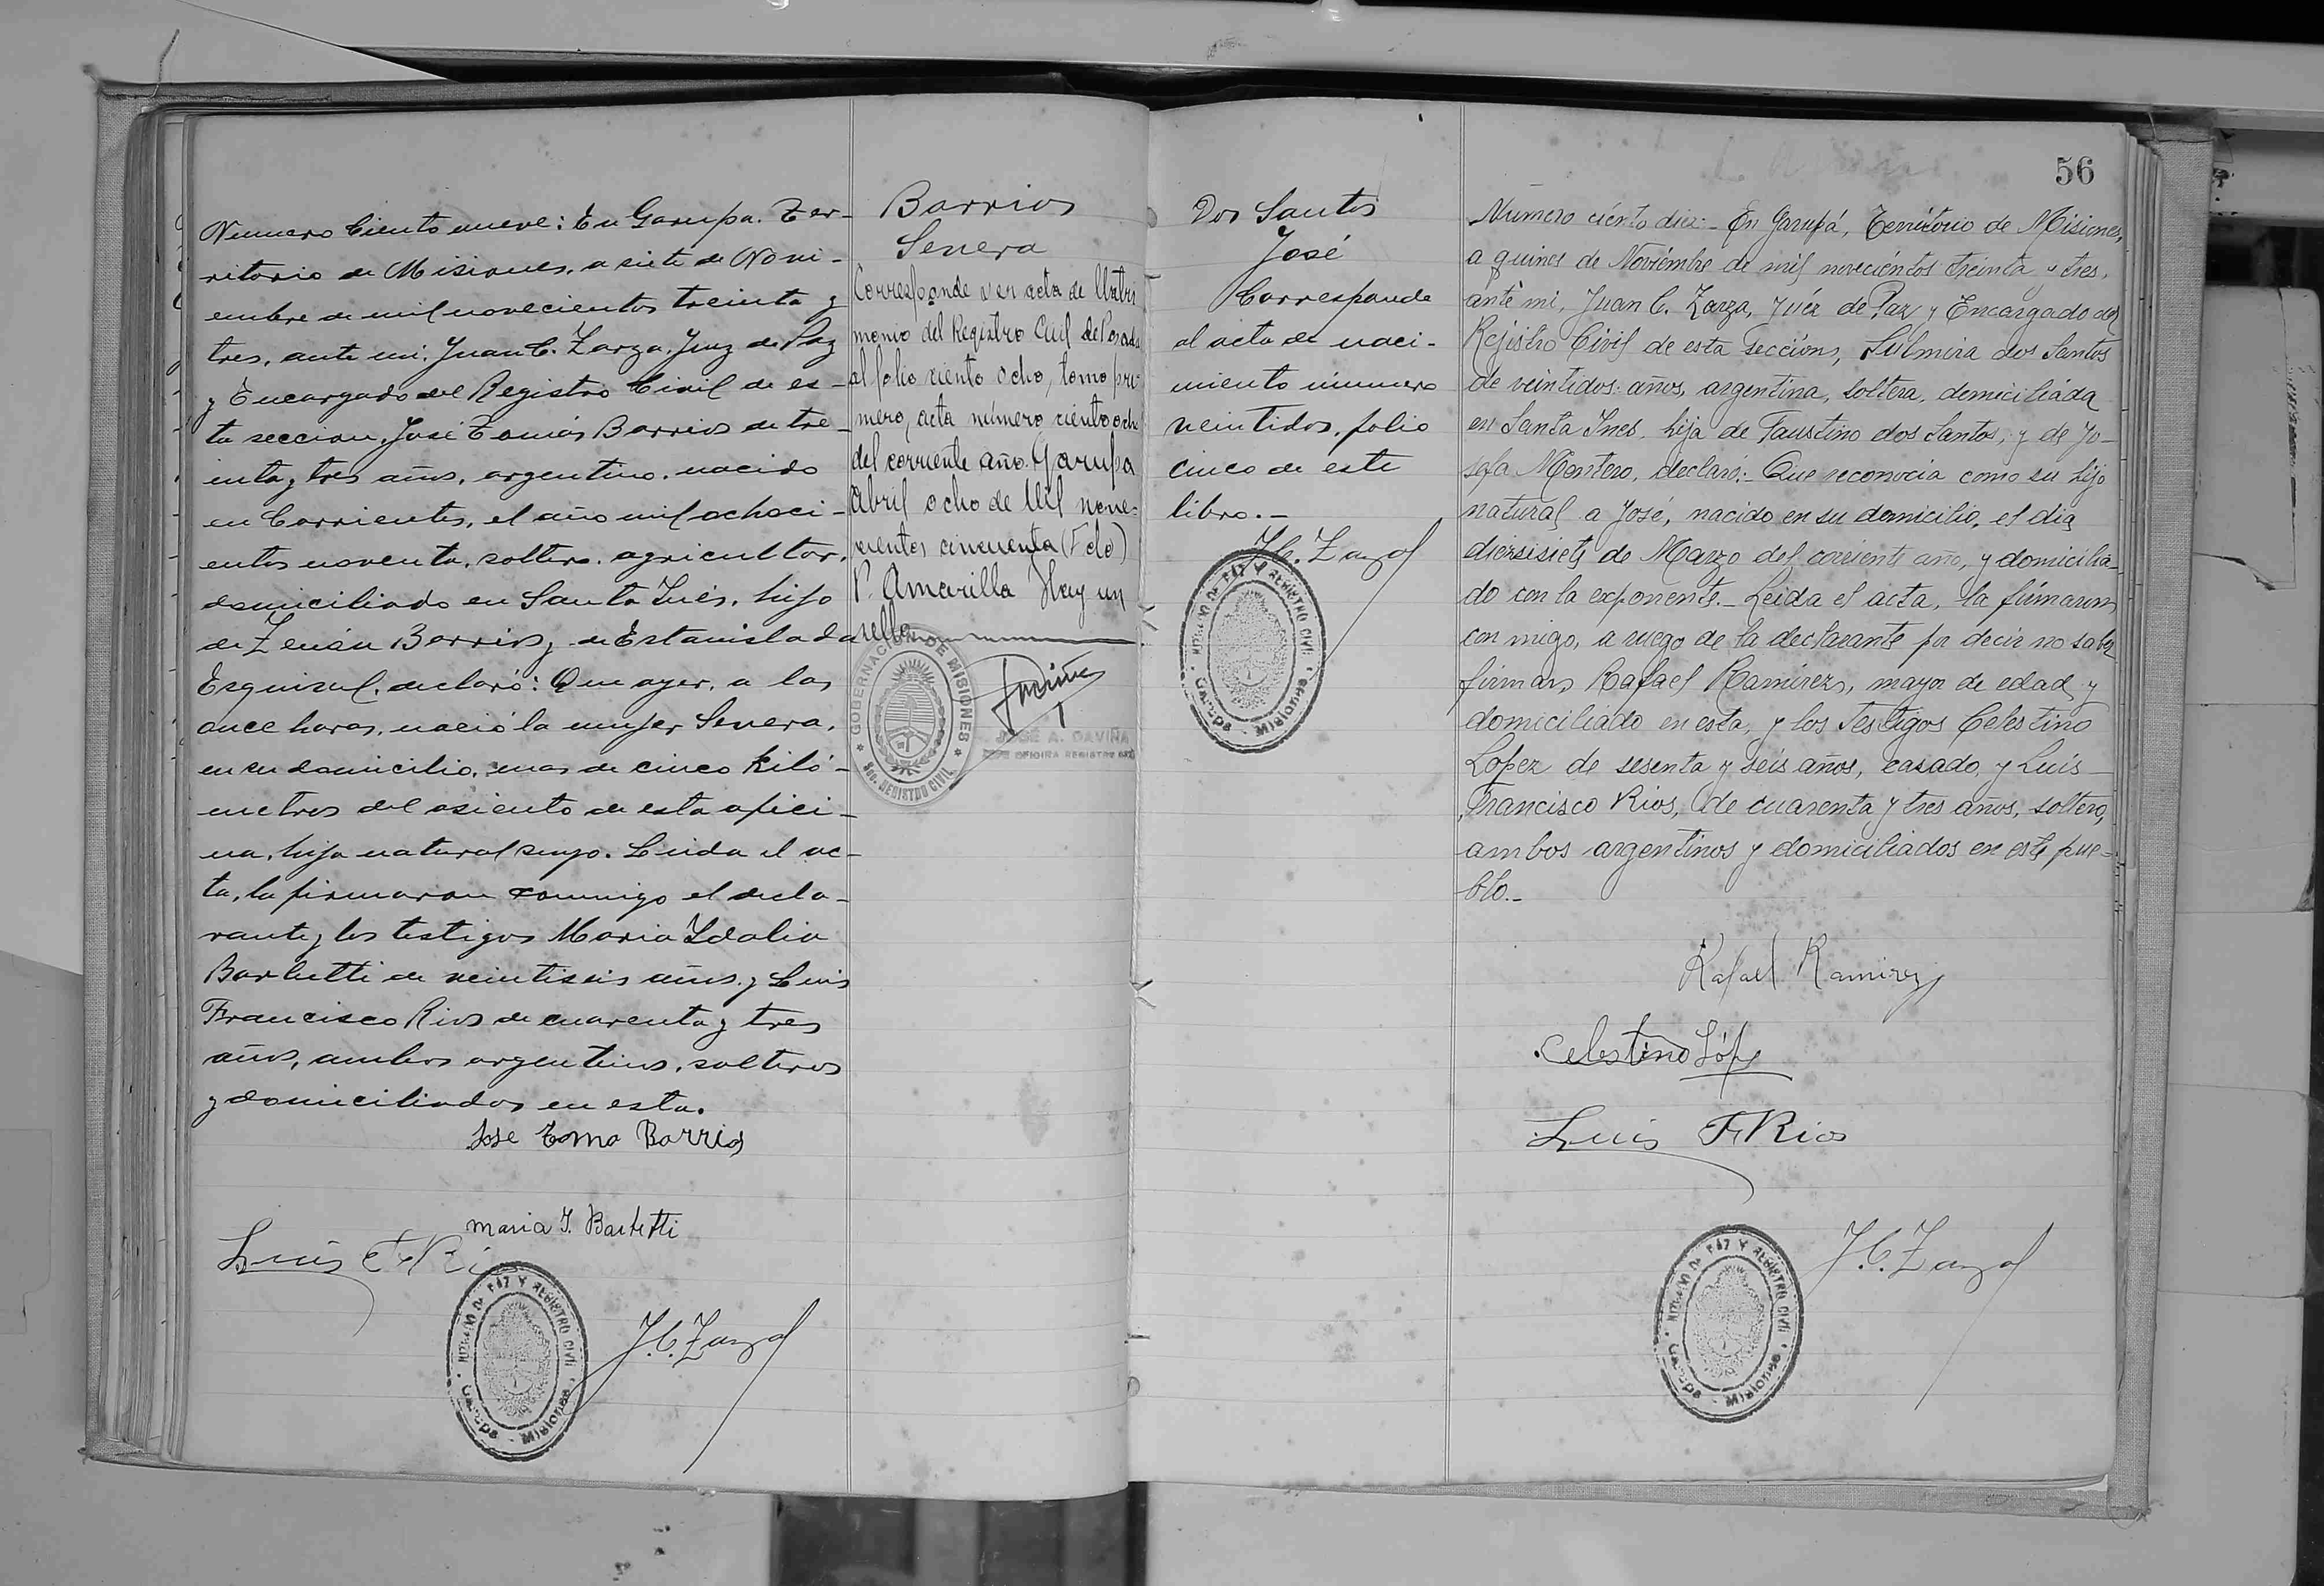 Numero Ciento nueve: En Garupa. Ter-
ritorio de Misiones, a siete de Novi-
embre de mil novecientos treinta y
tres, ante mi, Juan C. Zarza, Juez de Paz
y Encargado del Registro Civil de es-
ta seccion, José Tomás Barrios de tre-
inta y tres años, argentino, nacido
en Corrientes, el año mil ochoci-
entos noventa, soltero, agricultor,
domiciliado en Santa Inés, hijo
de Zenón Barrios y de Estanislada
Esquivel, declaró: Que ayer, a las
once horas, nació la mujer Senera,
en su domicilio, mas de cinco kiló-
metros del asiento de esta ofici-
na, hija natural suya. Leida el ac-
ta, la firmaron conmigo el decla-
rante y los testigos Maria Idalia
Barbetti de veintiseis años y Luis
Francisco Rios de cuarenta y tres
años, ambos argentinos, solteros
y domiciliados en esta.
Jose Toma Barrios
maria I. Barbetti
Luis F Rios
J.C. Zarza
JUZGADO DE PAZ Y REGISTRO CIVIL
Garupá - Misiones
Barrios
Senera
Corresponde ver acta de Matri
monio del Registro Civil de Posadas
al folio ciento ocho, tomo pri-
mero, acta número ciento ocho
del corriente año. Garupa
Abril ocho de Mil nove-
cientos cincuenta (Fdo)
P. Amarilla Hay un
sello
GOBERNACION DE MISIONES
REGISTRO CIVIL
JOSÉ A. GAVIÑA
OFICINA REGISTRO CIVIL
Dos Santos
José
Corresponde
al acta de naci-
miento número
veintidos, folio
cinco de este
libro.-
J.C. Zarza
JUZGADO DE PAZ Y REGISTRO CIVIL
Garupá - Misiones
56
Número ciento diez:- En Garupá, Territorio de Misiones,
a quince de Noviembre de mil novecientos treinta y tres,
ante mi, Juan C. Zarza, Juez de Paz y Encargado del
Rejistro Civil de esta Sección, Sulmira dos Santos
de veintidos años, argentina, soltera, domiciliada
en Santa Ines, hija de Faustino dos Santos, y de Jo-
sefa Montero, declaró:- Que reconocia como su hijo
natural a José, nacido en su domicilio, el dia
diesisiete de Marzo del corriente año, y domicilia-
do con la exponente.- Leida el acta, la firmaron
con migo, a ruego de la declarante por decir no saber
firmar, Rafael Ramirez, mayor de edad y
domiciliado en esta, y los testigos Celestino
Lopez de sesenta y seis años, casado, y Luis
Francisco Rios, de cuarenta y tres años, soltero,
ambos argentinos y domiciliados en este pue-
blo.-
Rafael Ramirez
Celestino Lópe
Luis F Rios
J.C. Zarza
JUZGADO DE PAZ Y REGISTRO CIVIL
Garupá - Misiones